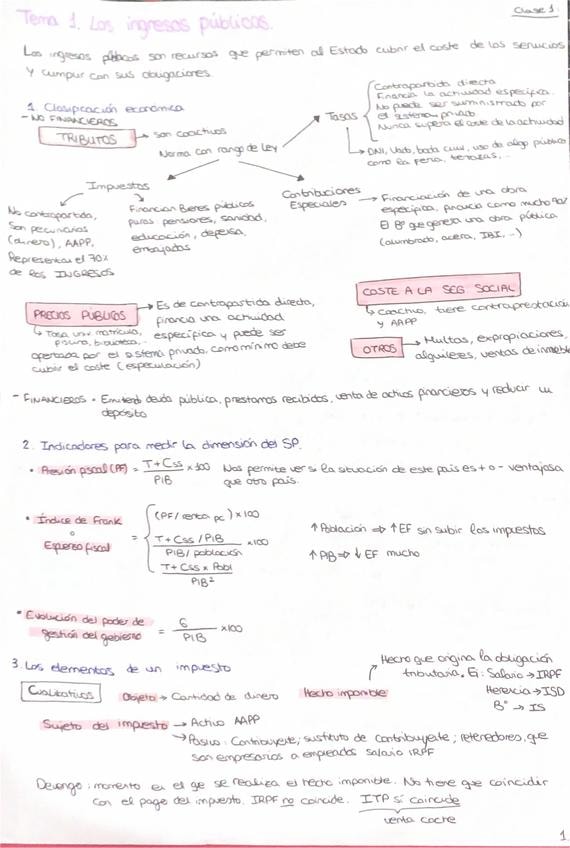 Clase 1.
Tema 1. Los ingresos públicos.
Los ingresos públicos son recursos que permiten al Estado cubrir el coste de los servicios
y cumplir con sus obligaciones.
1. Clasificación económica
- NO FINANCIEROS
TRIBUTOS → son coactivos
Norma con rango de Ley
→ Tasas
Contrapartida directa
Financia la actividad específica.
No puede ser suministrado por
el sistema privado
Nunca supera el coste de la actividad
→ DNI, Vado, boda civil, uso de algo público
como la feria, terrazas,...
Impuestos
No contrapartida,
Son pecuniarios
(dinero), AAPP,
Representan el 70%
de los INGRESOS
Financian Bienes públicos
puros pensiones, sanidad,
educación, defensa,
embajadas
Contribuciones
Especiales
→ Financiación de una obra
específica, financia como mucho 90%
El Bº que genera una obra pública
(alumbrado, acera, IBI, ...)
PRECIOS PÚBLICOS
→ Es de contrapartida directa,
financia una actividad
específica y puede ser
↳ Tasa univ matrícula,
piscina, biblioteca,..
ofertada por el sistema privado, como mínimo debe
cubrir el coste (especulación)
COSTE A LA SEG SOCIAL
↳ Coactivo, tiene contraprestación
y AAPP
OTROS → Multas, expropiaciones,
alquileres, ventas de inmueb
- FINANCIEROS • Emitiendo deuda pública, prestamos recibidos, venta de activos financieros y reducir un
depósito
2. Indicadores para medir la dimensión del SP.
• Presión fiscal (PF) = T + Css / PiB x 100 Nos permite ver si la situación de este país es + o - ventajosa
que otro país.
• Índice de Frank
o
Esfuerzo fiscal
= (PF / renta pc) x 100
T + Css / PiB / PiB / población x 100
T + Css x Pobl / PiB²
↑ Población ⇒ ↑ EF sin subir los impuestos
↑ PiB ⇒ ↓ EF mucho
• Evolución del poder de
gestión del gobierno = G / PiB x 100
3. Los elementos de un impuesto
Cualitativos Objeto → Cantidad de dinero Hecho imponible
Hecho que origina la obligación
tributaria. Ej: Salario → IRPF
Herencia → ISD
Bº → IS
Sujeto del impuesto → Activo AAPP
→ Pasivo: Contribuyente; sustituto de contribuyente; retenedores, que
son empresarios a empleados salario IRPF
Devengo: momento en el qe se realiza el hecho imponible. No tiene que coincidir
con el pago del impuesto. IRPF no coincide. ITP sí coincide
venta coche
1